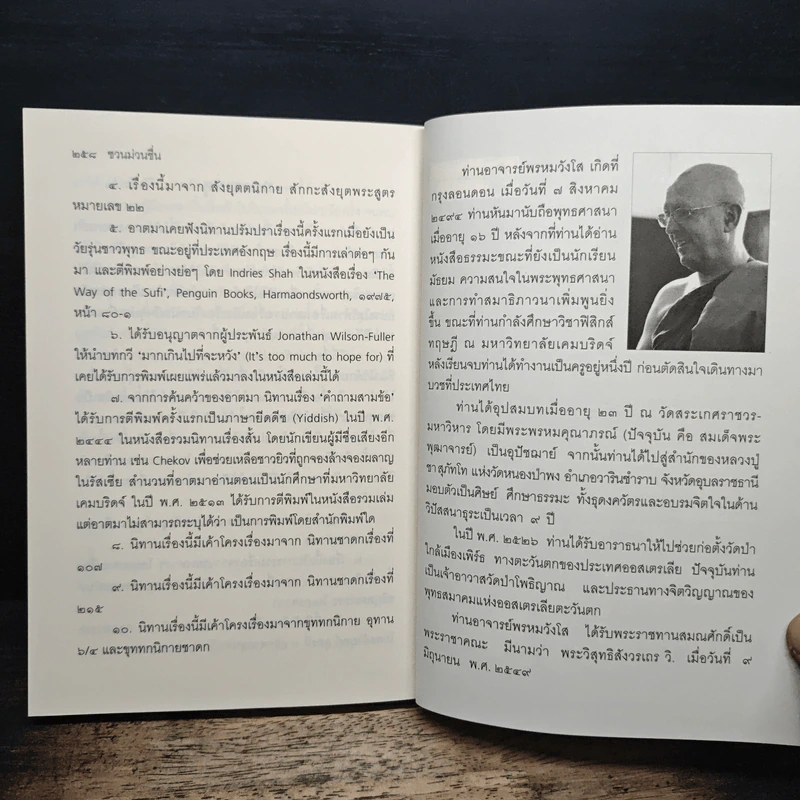 ๒๕๘ ชวนม่วนชื่น
๔. เรื่องนี้มาจาก สังยุตตนิกาย สักกะสังยุตพระสูตร
หมายเลข ๒๒
๕. อาตมาเคยฟังนิทานปรัมปราเรื่องนี้ครั้งแรกเมื่อยังเป็น
วัยรุ่นชาวพุทธ ขณะอยู่ที่ประเทศอังกฤษ เรื่องนี้มีการเล่าต่อๆ กัน
มา และตีพิมพ์อย่างย่อๆ โดย Indries Shah ในหนังสือเรื่อง ‘The
Way of the Sufi’, Penguin Books, Harmaondsworth, ๑๙๗๕,
หน้า ๘๐-๑
๖. ได้รับอนุญาตจากผู้ประพันธ์ Jonathan Wilson-Fuller
ให้นำบทกวี ‘มากเกินไปที่จะหวัง’ (It’s too much to hope for) ที่
เคยได้รับการพิมพ์เผยแพร่แล้วมาลงในหนังสือเล่มนี้ได้
๗. จากการค้นคว้าของอาตมา นิทานเรื่อง ‘คำถามสามข้อ’
ได้รับการตีพิมพ์ครั้งแรกเป็นภาษายีดดีช (Yiddish) ในปี พ.ศ.
๒๔๔๔ ในหนังสือรวมนิทานเรื่องสั้น โดยนักเขียนผู้มีชื่อเสียงอีก
หลายท่าน เช่น Chekov เพื่อช่วยเหลือชาวยิวที่ถูกจองล้างจองผลาญ
ในรัสเซีย สำนวนที่อาตมาอ่านตอนเป็นนักศึกษาที่มหาวิทยาลัย
เคมบริดจ์ ในปี พ.ศ. ๒๕๑๓ ได้รับการตีพิมพ์ในหนังสือรวมเล่ม
แต่อาตมาไม่สามารถระบุได้ว่า เป็นการพิมพ์โดยสำนักพิมพ์ใด
๘. นิทานเรื่องนี้มีเค้าโครงเรื่องมาจาก นิทานชาดกเรื่องที่
๑๐๗
๙. นิทานเรื่องนี้มีเค้าโครงเรื่องมาจาก นิทานชาดกเรื่องที่
๒๑๕
๑๐. นิทานเรื่องนี้มีเค้าโครงเรื่องมาจากขุททกนิกาย อุทาน
๖/๔ และขุททกนิกายชาดก
ท่านอาจารย์พรหมวังโส เกิดที่
กรุงลอนดอน เมื่อวันที่ ๗ สิงหาคม
๒๔๙๔ ท่านหันมานับถือพุทธศาสนา
เมื่ออายุ ๑๖ ปี หลังจากที่ท่านได้อ่าน
หนังสือธรรมะขณะที่ยังเป็นนักเรียน
มัธยม ความสนใจในพระพุทธศาสนา
และการทำสมาธิภาวนาเพิ่มพูนยิ่ง
ขึ้น ขณะที่ท่านกำลังศึกษาวิชาฟิสิกส์
ทฤษฎี ณ มหาวิทยาลัยเคมบริดจ์
หลังเรียนจบท่านได้ทำงานเป็นครูอยู่หนึ่งปี ก่อนตัดสินใจเดินทางมา
บวชที่ประเทศไทย
ท่านได้อุปสมบทเมื่ออายุ ๒๓ ปี ณ วัดสระเกศราชวร-
มหาวิหาร โดยมีพระพรหมคุณาภรณ์ (ปัจจุบัน คือ สมเด็จพระ
พุฒาจารย์) เป็นอุปัชฌาย์ จากนั้นท่านได้ไปสู่สำนักของหลวงปู่
ชาสุภัทโท แห่งวัดหนองป่าพง อำเภอวารินชำราบ จังหวัดอุบลราชธานี
มอบตัวเป็นศิษย์ ศึกษาธรรมะ ทั้งธุดงควัตรและอบรมจิตใจในด้าน
วิปัสสนาธุระเป็นเวลา ๙ ปี
ในปี พ.ศ. ๒๕๒๖ ท่านได้รับอาราธนาให้ไปช่วยก่อตั้งวัดป่า
ใกล้เมืองเพิร์ธ ทางตะวันตกของประเทศออสเตรเลีย ปัจจุบันท่าน
เป็นเจ้าอาวาสวัดป่าโพธิญาณ และประธานทางจิตวิญญาณของ
พุทธสมาคมแห่งออสเตรเลียตะวันตก
ท่านอาจารย์พรหมวังโส ได้รับพระราชทานสมณศักดิ์เป็น
พระราชาคณะ มีนามว่า พระวิสุทธิสังวรเถร วิ. เมื่อวันที่ ๙
มิถุนายน พ.ศ. ๒๕๔๙